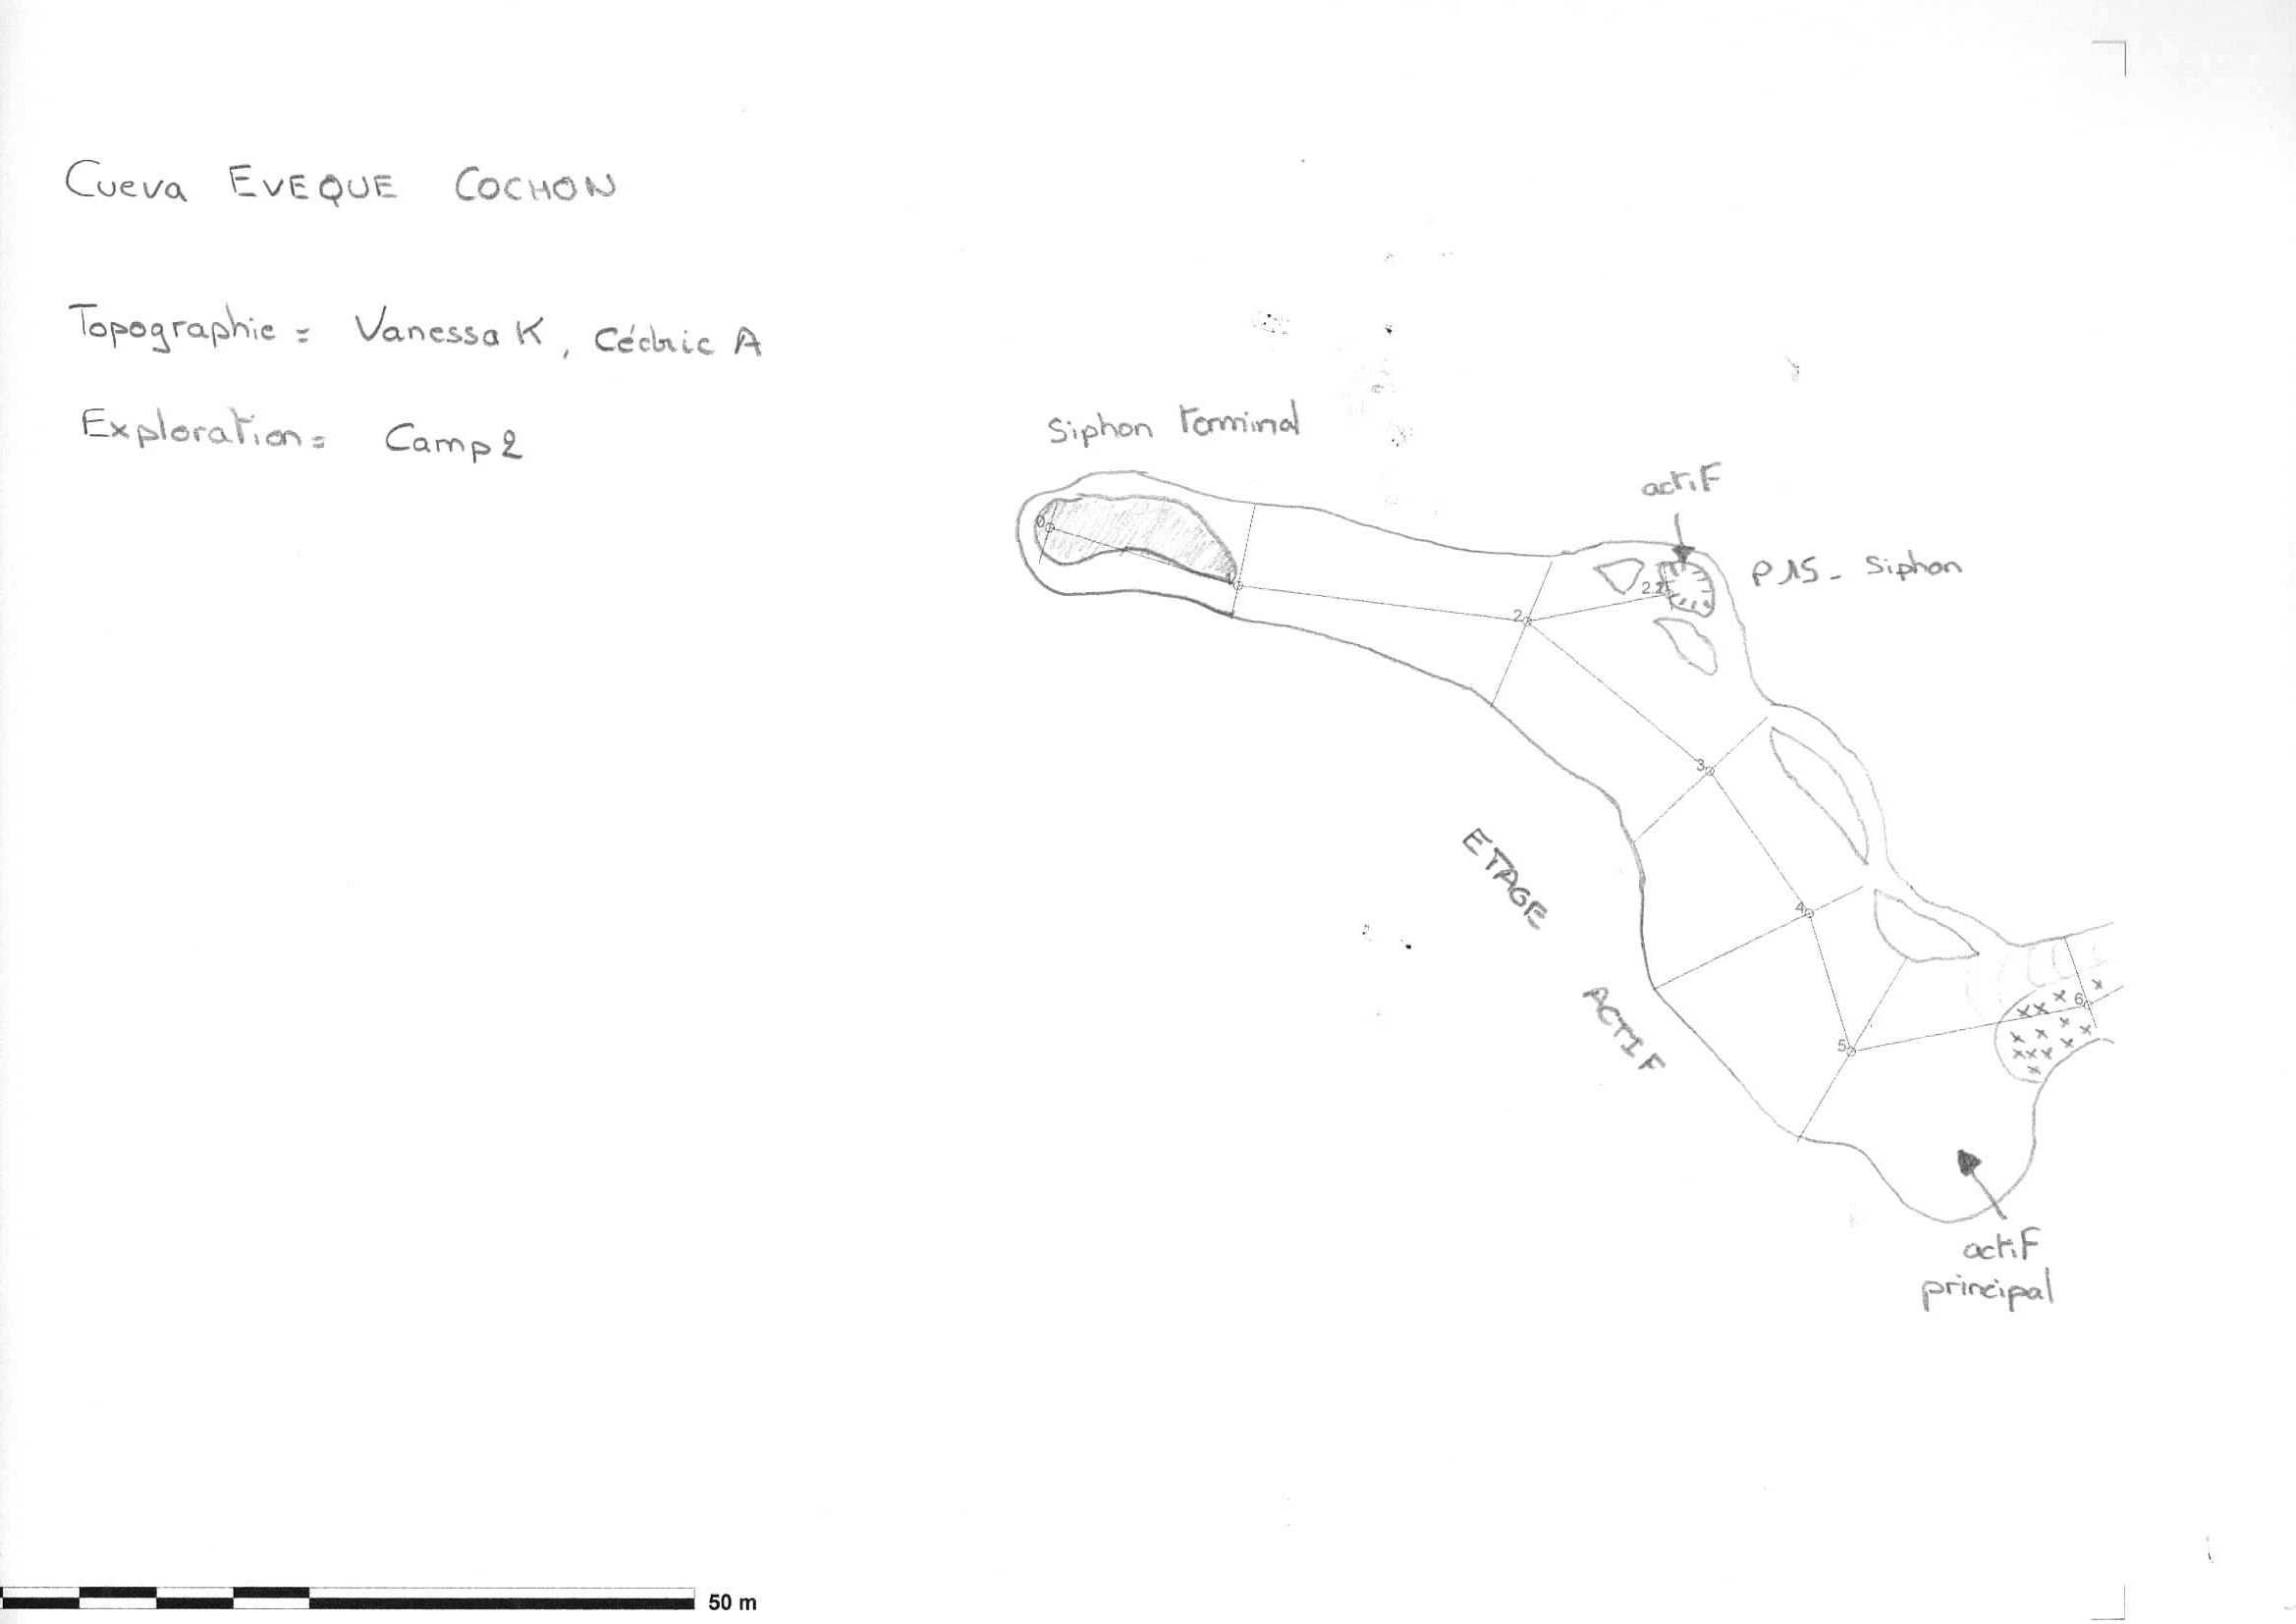 Cueva EVEQUE COCHON
Topographie = Vanessa K, Cédric A
Exploration = Camp 2
Siphon Terminal
actiF
P15 - Siphon
0
1
2
3
4
5
6
ETAGE
ACTIF
actiF
principal
50 m